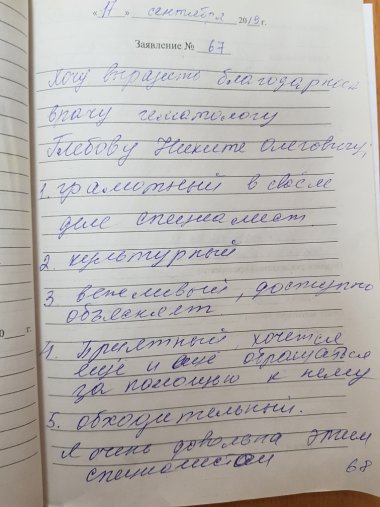 « 17 » сентября 2019 г.
Заявление № 67
Хочу выразить благодарность
врачу гематологу
Глебову Никите Олеговичу,
1. грамотный в своём
деле специалист.
2. культурный
3. вежливый, доступно
объясняет
4. Приятный хочется
ещё и ещё обращаться
за помощью к нему
5. обходительный.
Я очень довольна этим
специалистом
68
0 г.